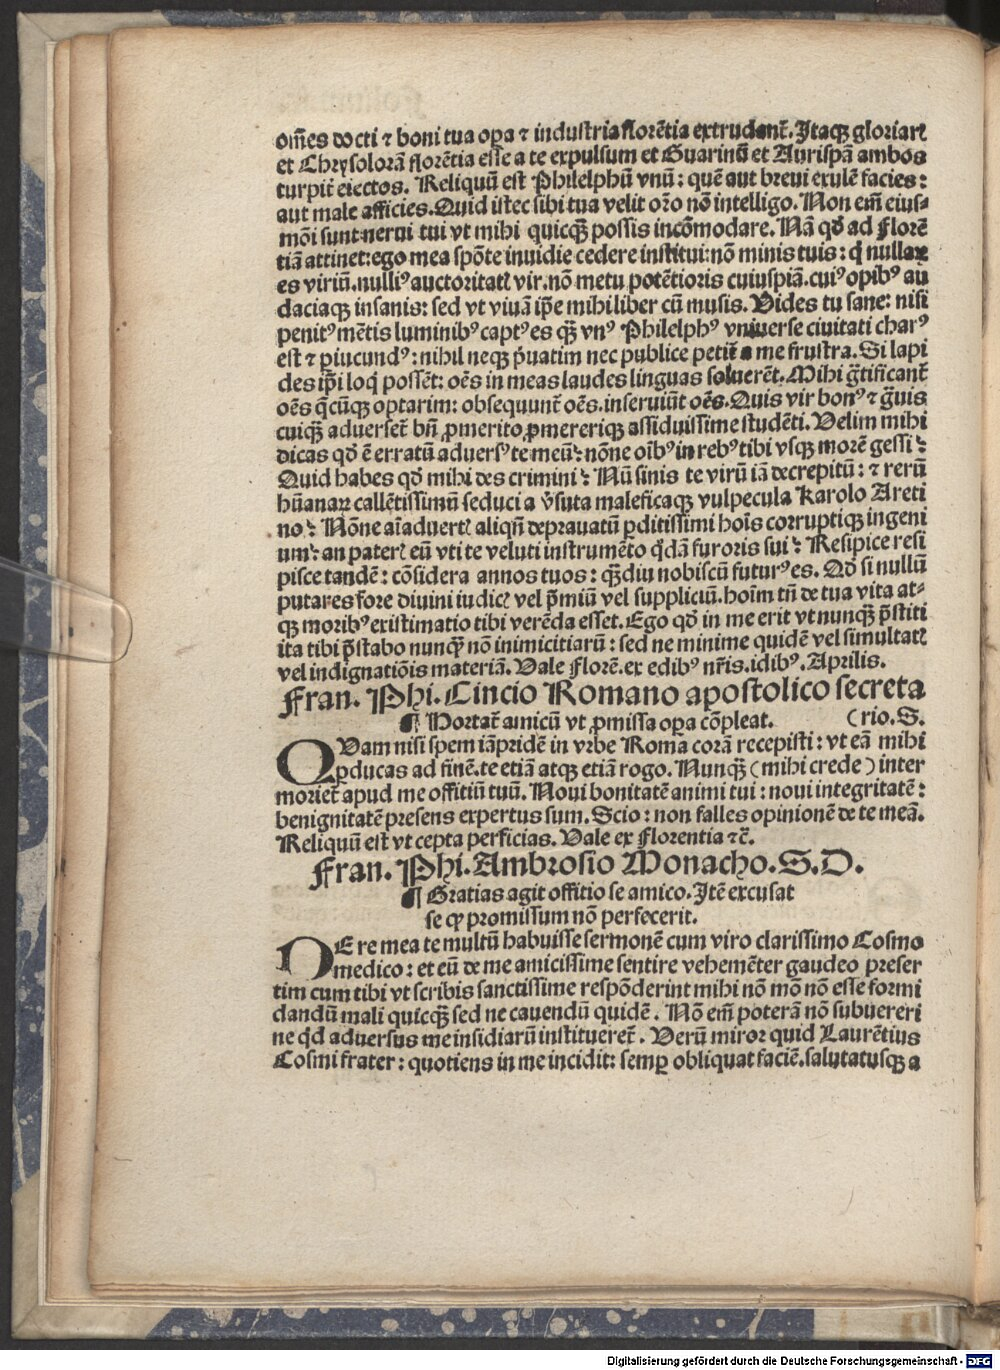 om̄es docti ⁊ boni tua oꝑa ⁊ industria florētia extrudant̄. Itaqꝫ gloriaꝛꝭ
et Chrysolorā florētia esse a te expulsum et Guarinū et Aurispā ambos
turpit̄ eiectos. Reliquū est Philelphū vnū: quē aut breui exulē facies:
aut male afficies. Quid istec sibi tua velit oꝛo nō intelligo. Non em̄ eius⸗
mōi sunt nerui tui vt mihi quicqꝫ possis incōmodare. Nā qd̓ ad Florē
tiā attinet: ego mea spōte inuidie cedere institui: nō minis tuis: q̇ nullaꝝ
es viriū. nulliꝰ auctoritatꝭ vir. nō metu potētioris cuiuspiā. cuiꝰ opibꝰ au
daciaqꝫ insanis: sed vt viuā ip̄e mihi liber cū musis. Vides tu sane: nisi
penitꝰ mētis luminibꝰ captꝰ es qꝫ vnꝰ Philelphꝰ vniuerse ciuitati charꝰ
est ⁊ ꝑiucundꝰ: nihil neqꝫ p̄uatim nec publice petiit a me frustra. Si lapi
des ip̄i loq̇ possēt: oēs in meas laudes linguas soluerēt. Mihi g̃tificant̄
oēs q̄cūqꝫ optarim: obsequunt̄ oēs. inseruiūt oēs. Quis vir bonꝰ ⁊ g̃uis
cuiqꝫ aduerset̄ bn̄ ꝓmerito, ꝓmereriqꝫ assiduissime studēti. Velim mihi
dicas qd̓ ē erratū aduersꝰ te meū: nōne oīb⁹ in rebꝰ tibi vsqꝫ morē gessi:
Quid habes qd̓ mihi des crimini: Nū sinis te virū iā decrepitū: ⁊ rerū
hūanaꝝ callētissimū seduci a v̓suta maleficaqꝫ vulpecula Karolo Areti
no: Nōne aīaduertꝭ aliqn̄ deprauatū ꝑditissimi hoīs corruptiqꝫ ingeni
um: an paterꝭ eū vti te veluti instrumēto q̇dā furoris sui: Resipice resi
pisce tandē: cōsidera annos tuos: qꝫdiu nobiscū futurꝰ es. Qd̓ si nullū
putares fore diuini iudicꝭ vel p̄miū vel suppliciū. hoīm tn̄ de tua vita at⸗
qꝫ moribꝰ existimatio tibi verēda esset. Ego qd̓ in me erit vt nunqꝫ p̄stiti
ita tibi p̄stabo nunqꝫ nō inimicitiarū: sed ne minime quidē vel simultatꝭ
vel indignatiōis materiā. Vale Florē. ex edibꝰ nr̄is. idibꝰ. Aprilis.
Fran. Phi. Cincio Romano apostolico secreta
¶ Hortat̄ amicū vt ꝓmissa oꝑa cōpleat. (rio. S.
QVam nisi spem iāpridē in vrbe Roma corā recepisti: vt eā mihi
ꝑducas ad finē. te etiā atqꝫ etiā rogo. Nunqꝫ (mihi crede) inter
moriet̄ apud me offitiū tuū. Noui bonitatē animi tui: noui integritatē:
benignitatē presens expertus sum. Scio: non falles opinionē de te meā.
Reliquū est vt cepta perficias. Vale ex Florentia ⁊c̄.
Fran. Phi. Ambrosio Monacho. S. D.
¶ Gratias agit offitio se amico. Itē excusat
se ꝙ promissum nō perfecerit.
DE re mea te multū habuisse sermonē cum viro clarissimo Cosmo
medico: et eū de me amicissime sentire vehemēter gaudeo preser
tim cum tibi vt scribis sanctissime respōderint mihi nō mō nō esse formi
dandū mali quicqꝫ sed ne cauendū quidē. Nō em̄ poterā nō subuereri
ne qd̓ aduersus me insidiarū institueret̄. Verū miror quid Laurētius
Cosmi frater: quotiens in me incidit: semꝑ obliquat faciē. salutatusqꝫ a
Digitalisierung gefördert durch die Deutsche Forschungsgemeinschaft - DFG